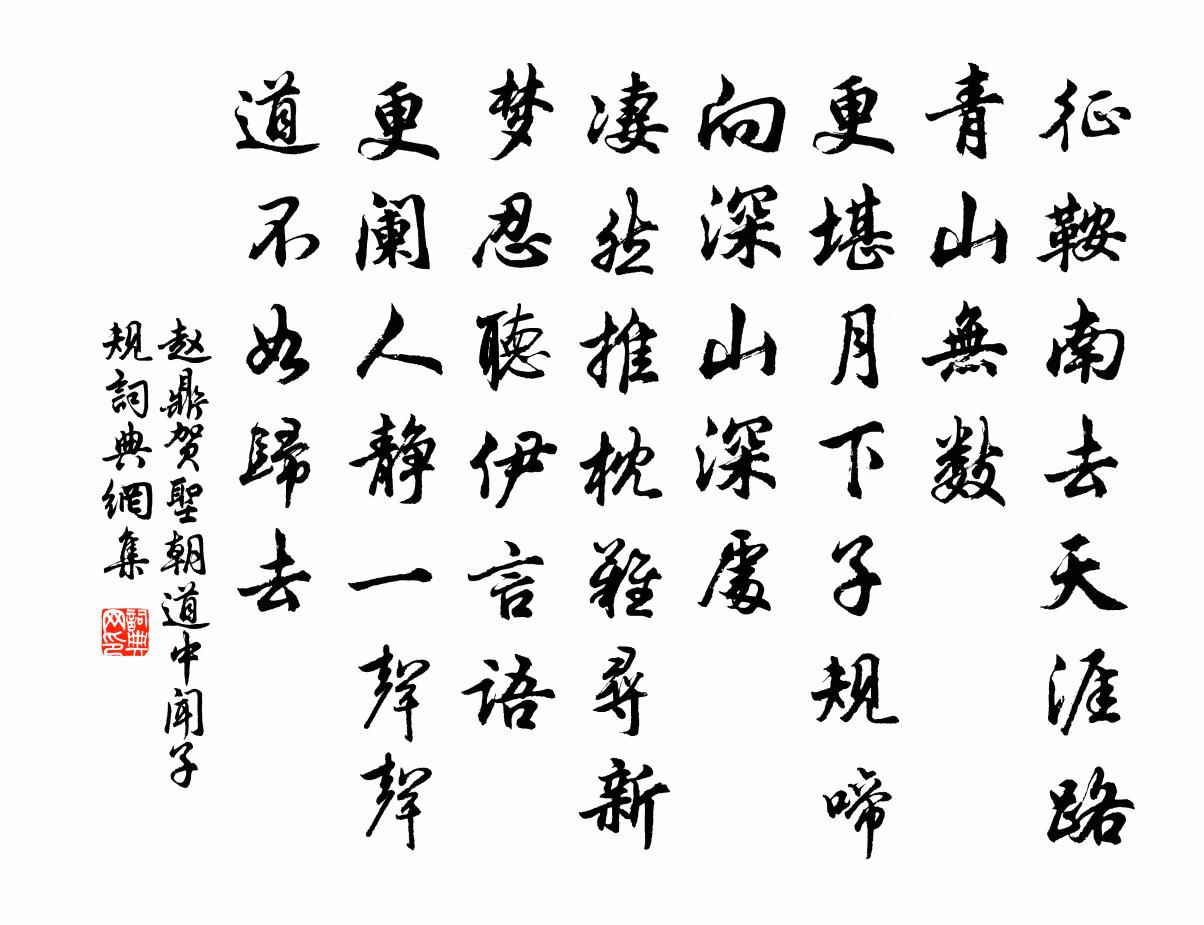 征鞍南去天涯路
青山無数
更堪月下子规啼
向深山深處
凄然推枕難尋新
梦忍聽伊言语
更阑人静一聲聲
道不如歸去
赵鼎贺聖朝道中闻子
规詞典網集
詞典网印